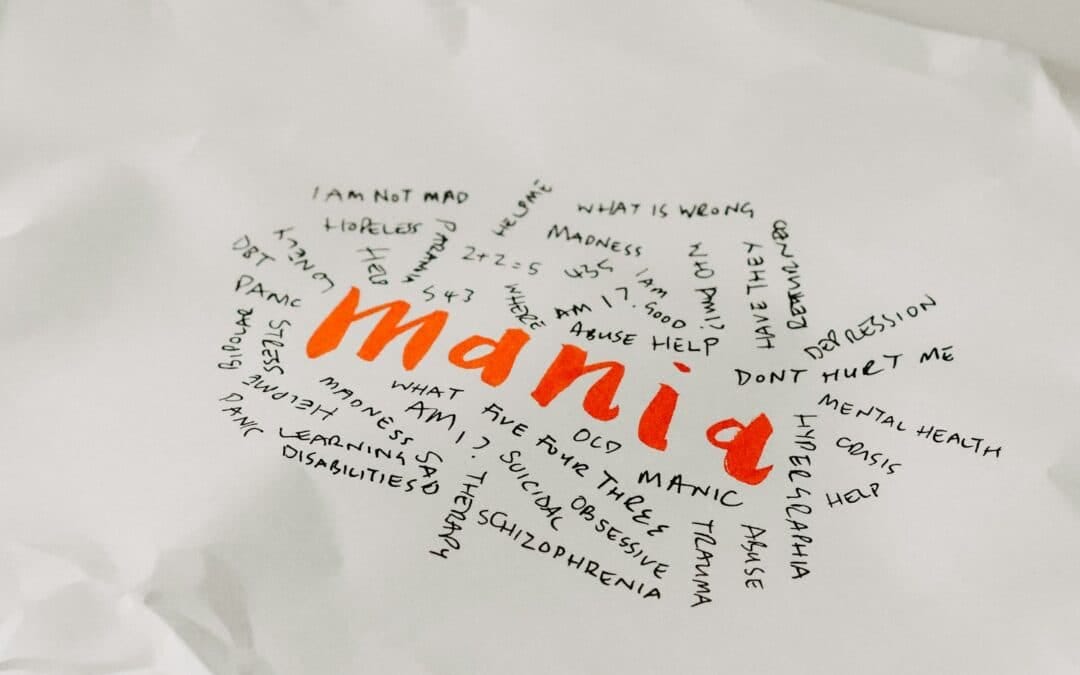 I AM NOT MAD
HELP ME
WHAT IS WRONG
HOPELESS
PARANOIA
MADNESS
LONELY
HELP
2+2=5
WHO AM I?
HAVE THEY
DBT
I AM
GOOD
PANIC
543
WHERE
AM I?
ABUSE HELP
DEPRESSION
mania
STRESS
DONT HURT ME
HELP ME
MADNESS
SAD
WHAT
AM I?
FIVE FOUR THREE
OLD
MANIC
MENTAL HEALTH
CRISIS
HELP
HYPERGRAPHIA
PANIC
LEARNING
DISABILITIES
THERAPY
SUICIDAL
OBSESSIVE
SCHIZOPHRENIA
TRAUMA
ABUSE